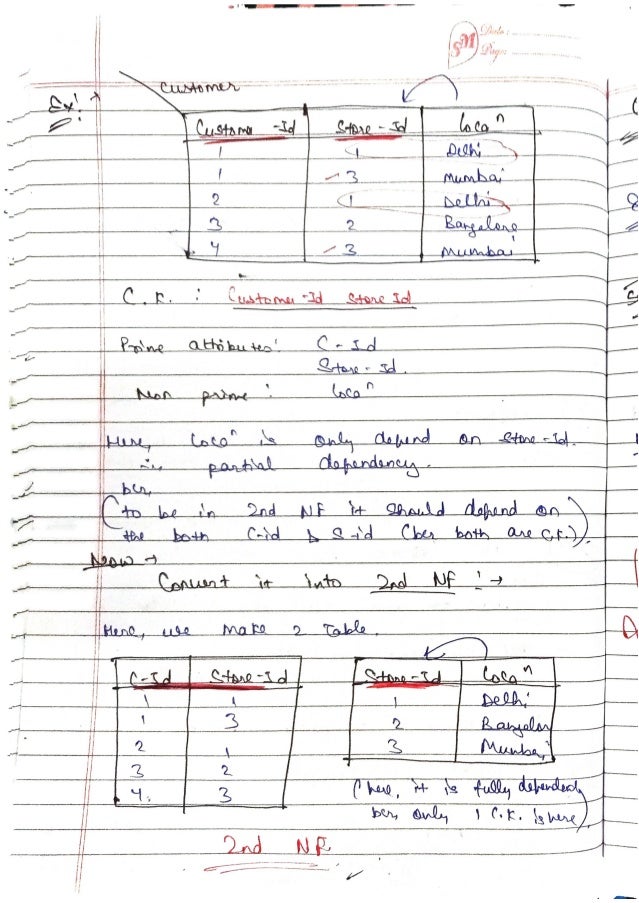 Date :
SM Page :
Customer
Ex: →
Custome -Id Store - Id Locaⁿ
1 1 Delhi
1 3 Mumbai
2 1 Delhi
3 2 Bangalore
4 3 Mumbai
C.K. : Customer-Id Store Id
Prime attributes: C-Id
Store-Id.
Non prime : Locaⁿ
Here, Locaⁿ is only depend on Store-Id.
∴ partial dependency.
bcz,
(to be in 2nd NF it should depend on
the both C-id & S-id (bcz both are C.K.)).
Now →
Convert it into 2nd NF : →
Here, we make 2 Table.
C-Id Store-Id
1 1
1 3
2 1
3 2
4. 3
Store-Id Locaⁿ
1 Delhi
2 Bangalor
3 Mumbai
(here, it is fully dependend
bcz only 1 C.K. is here)
2nd NF.